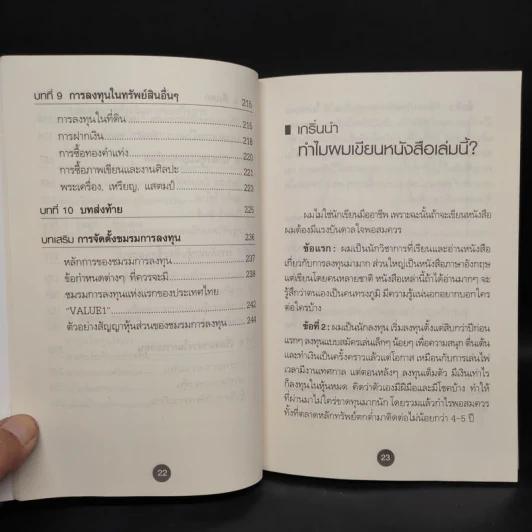 บทที่ 9 การลงทุนในทรัพย์สินอื่นๆ 216
การลงทุนในที่ดิน 216
การฝากเงิน 218
การซื้อทองคำแท่ง 220
การซื้อภาพเขียนและงานศิลปะ 221
พระเครื่อง, เหรียญ, แสตมป์ 223
บทที่ 10 บทส่งท้าย 225
บทเสริม การจัดตั้งชมรมการลงทุน 236
หลักการของชมรมการลงทุน 237
ข้อกำหนดต่างๆ ที่ควรจะมี 238
ชมรมการลงทุนแห่งแรกของประเทศไทย
"VALUE1" 242
ตัวอย่างสัญญาหุ้นส่วนของชมรมการลงทุน 244
22
เกริ่นนำ
ทำไมผมเขียนหนังสือเล่มนี้?
ผมไม่ใช่นักเขียนมืออาชีพ เพราะฉะนั้นถ้าจะเขียนหนังสือ
ผมต้องมีแรงบันดาลใจพอสมควร
ข้อแรก : ผมเป็นนักวิชาการที่เรียนและอ่านหนังสือ
เกี่ยวกับการลงทุนมามาก ส่วนใหญ่เป็นหนังสือภาษาอังกฤษ
แต่เขียนโดยคนหลายชาติ หนังสือเหล่านี้ถ้าได้อ่านมากๆ จะ
รู้สึกว่าตนเองเป็นคนทรงภูมิ มีความรู้แน่นอกอยากบอกใคร
ต่อใครบ้าง
ข้อที่ 2 : ผมเป็นนักลงทุน เริ่มลงทุนตั้งแต่สิบกว่าปีก่อน
แรกๆ ลงทุนแบบสมัครเล่นเล็กๆ น้อยๆ เพื่อความสนุก ตื่นเต้น
และทำเงินเป็นครั้งคราวแล้วแต่โอกาส เหมือนกับการเล่นไพ่
เวลามีงานเทศกาล แต่ตอนหลังๆ ลงทุนเต็มตัว มีเงินเท่าไร
ก็ลงทุนในหุ้นหมด คิดว่าตัวเองมีฝีมือและมีโชคบ้าง ทำให้
ที่ผ่านมาไม่ใคร่ขาดทุนมากนัก โดยรวมแล้วกำไรพอสมควร
ทั้งที่ตลาดหลักทรัพย์ตกต่ำมาติดต่อไม่น้อยกว่า 4-5 ปี
23